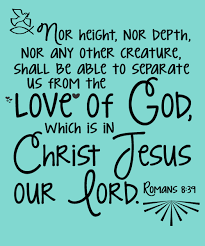 Nor height, nor depth,
nor any other creature,
shall be able to separate
us from the
Love of God,
which is in
Christ Jesus
our Lord. Romans 8:39